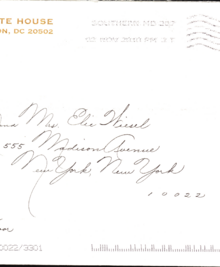 TE HOUSE
ON, DC 20502
SOUTHERN MD 207
02 NOV 2010 PM
Mr. Elie Wiesel
555 Madison Avenue
New York, New York
10022
0022/3301